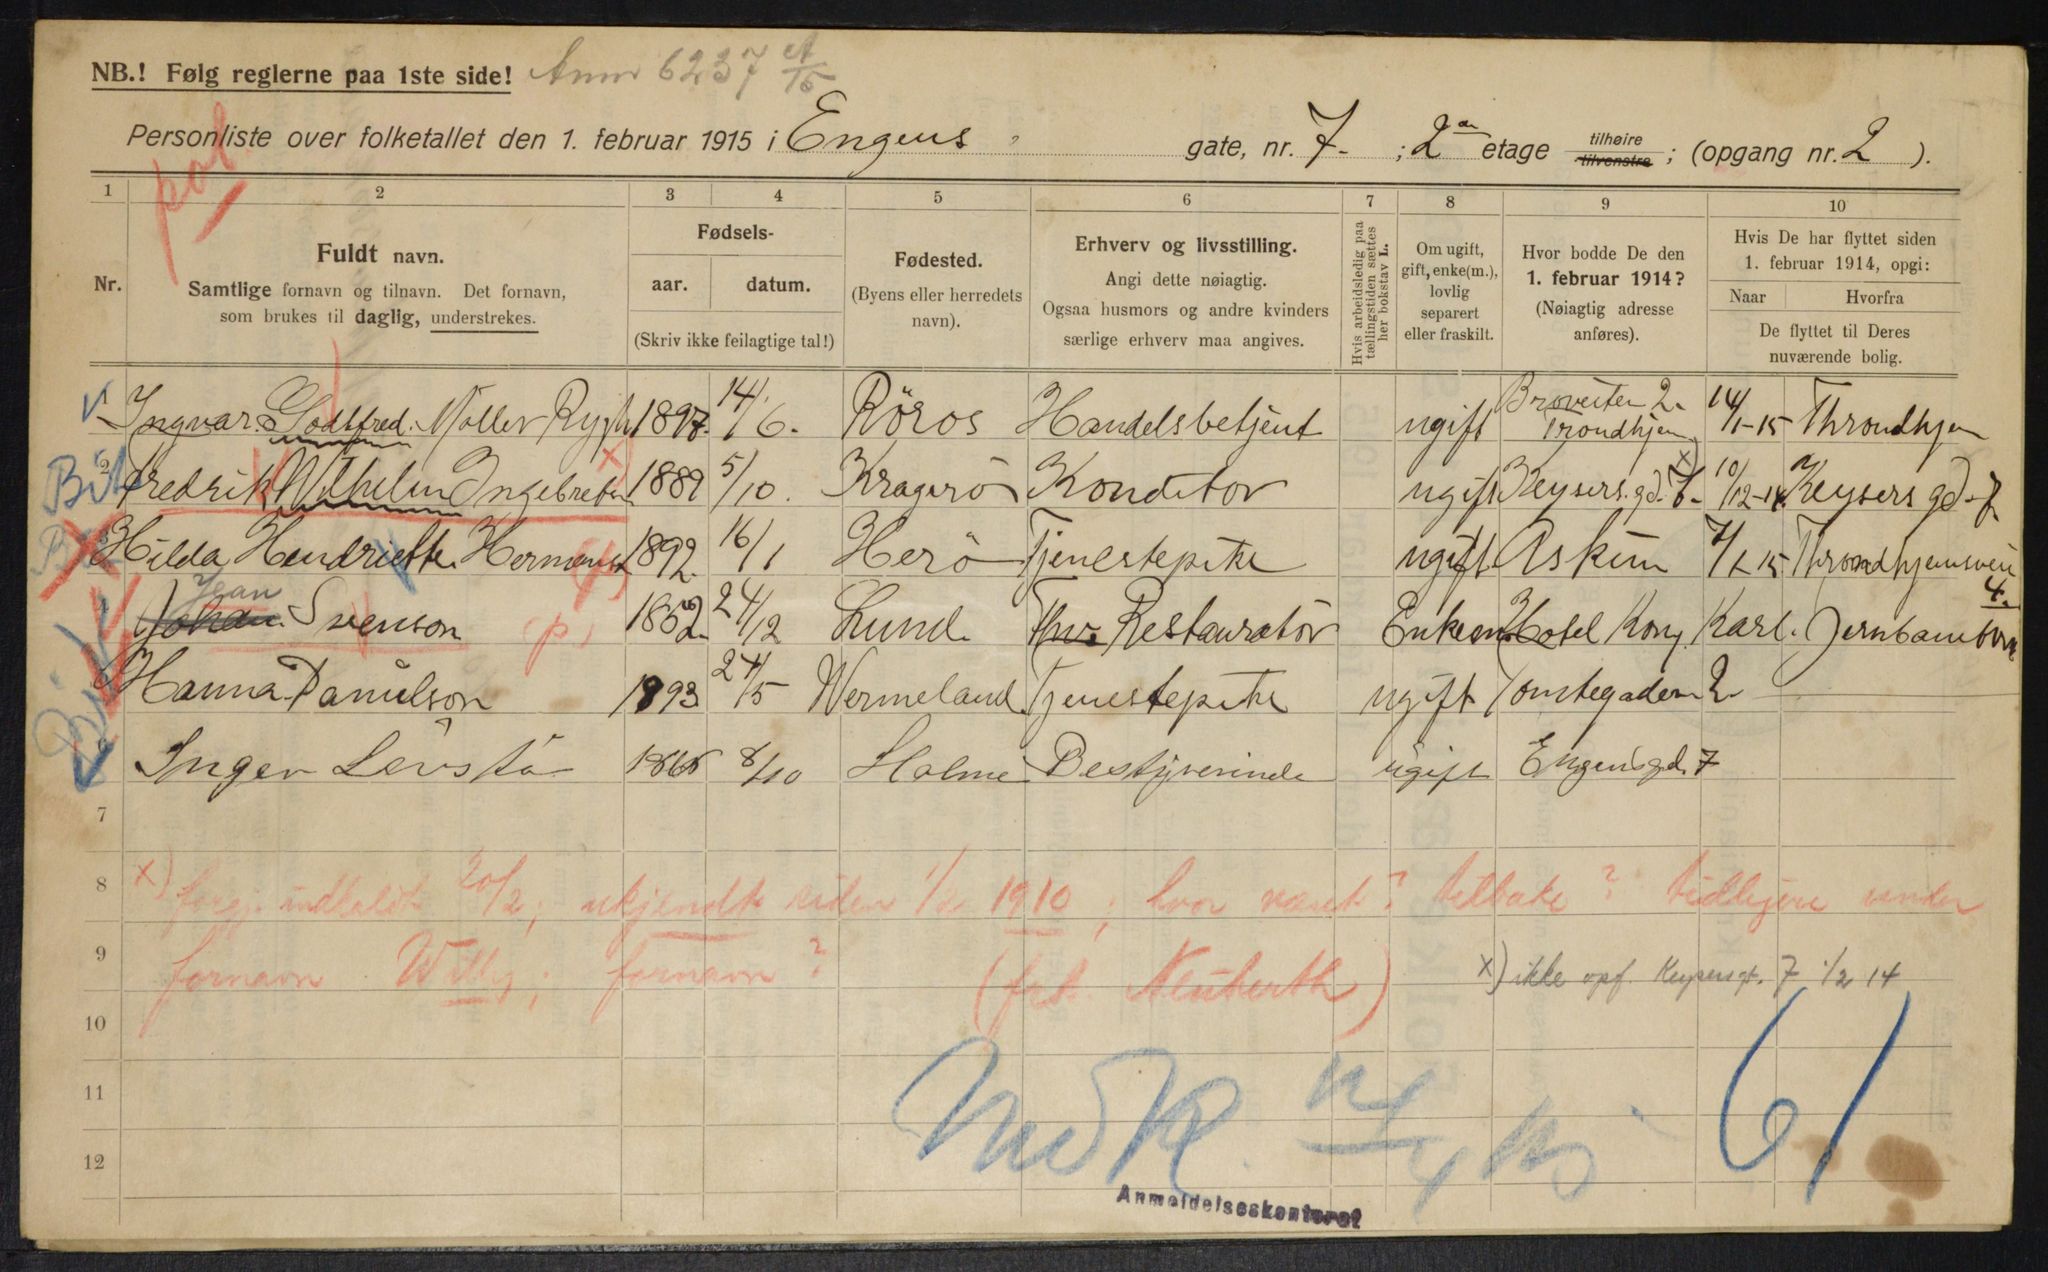 NB.! Følg reglerne paa 1ste side! 6237 A/15
Personliste over folketallet den 1. februar 1915 i Engens gate, nr. 7. ; 2den etage tilhøire tilvenstre ; (opgang nr. 2 ).
pol.
1 2 3 4 5 6 7 8 9 10
Nr.
Fuldt navn.
Samtlige fornavn og tilnavn. Det fornavn,
som brukes til daglig, understrekes.
Fødsels-
aar. datum.
(Skriv ikke feilagtige tal!)
Fødested.
(Byens eller herredets
navn).
Erhverv og livsstilling.
Angi dette nøiagtig.
Ogsaa husmors og andre kvinders
særlige erhverv maa angives.
Hvis arbeidsledig paa
tællingstiden sættes
her bokstav L.
Om ugift,
gift, enke(m.),
lovlig
separert
eller fraskilt.
Hvor bodde De den
1. februar 1914?
(Nøiagtig adresse
anføres).
Hvis De har flyttet siden
1. februar 1914, opgi:
Naar Hvorfra
De flyttet til Deres
nuværende bolig.
1 Ingvar Godtfred Møller Rygh 1897. 14/6. Röros Handelsbetjent ugift Broveiten 2. Trondhjem 14/1-15 Throndhjem
2 Fredrik Wilhelm Ingebretsen x) 1889 5/10. Kragerö Konditor ugift Keysers gd. 7. x) 10/12-14 Keysers gd. 7
Hilda Hendriette Hermansen 1892. 16/1 Herö Tjenestepike ugift Askim 7/1 15 Throndhjemsvein 4.
Jean
Johan Svenson (p) 1862. 24/12 Lund Restauratör Enkem Hotel Kong Karl. Jernbanetorvet
Hanna Danielson 1893 24/5 Wermeland Tjenestepike ugift Tomtegaden 2
Inger Levstå 1866 8/10 Holme Bestyrerinde ugift Engensgd. 7
7
8 x) forgj. indkaldt 20/2; ukjendt siden 1/2 1910; hvor været? tilbake? tidligere under
9 fornavn Willy; fornavn? (frk. Neuberth) x) ikke opf. Keysersgt. 7 1/2 14
10
11
12
61
Anmeldelseskontoret